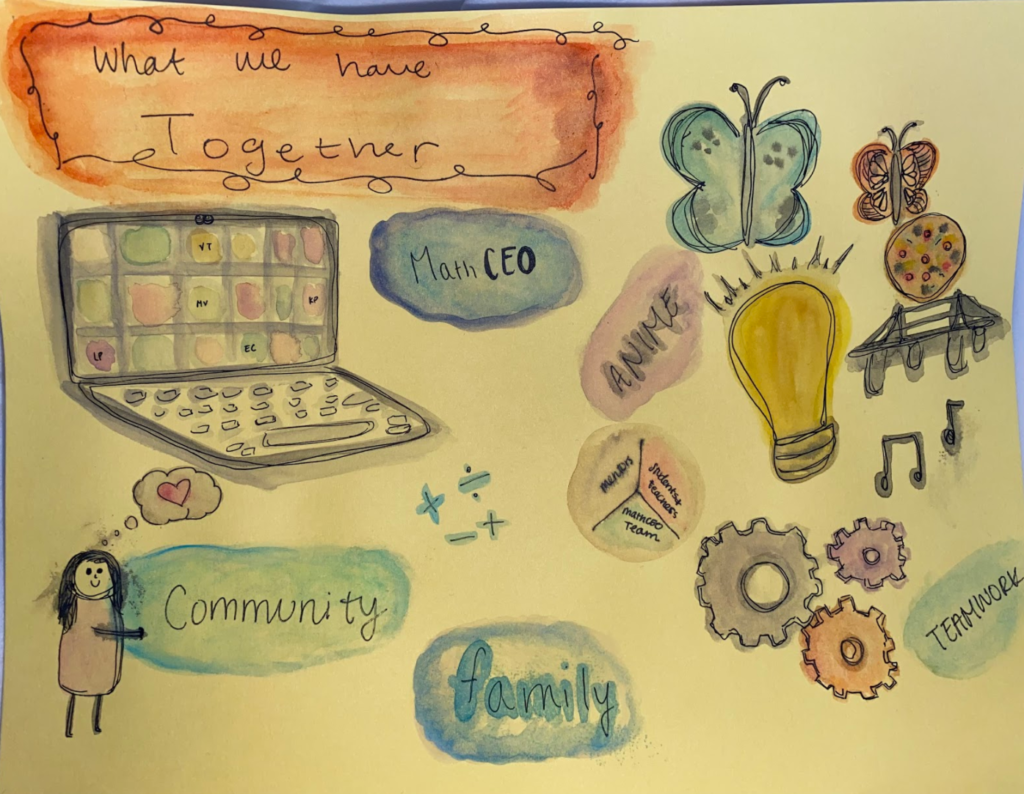 What we have
Together
VT
MV
KP
LP
EC
Math CEO
ANIME
mentors
students+
teachers
mathCEO
Team
Community
family
TEAMWORK